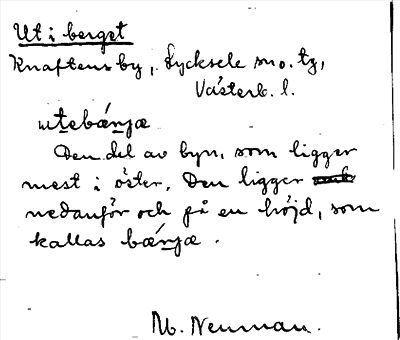 Ut i berget
Knaftens by, Lycksele sno. tg,
Västerb. l.
utebænjæ
Den del av byn, som ligger
mest i öster. Den ligger
nedanför och på en höjd, som
kallas bænjæ.
M. Neuman.